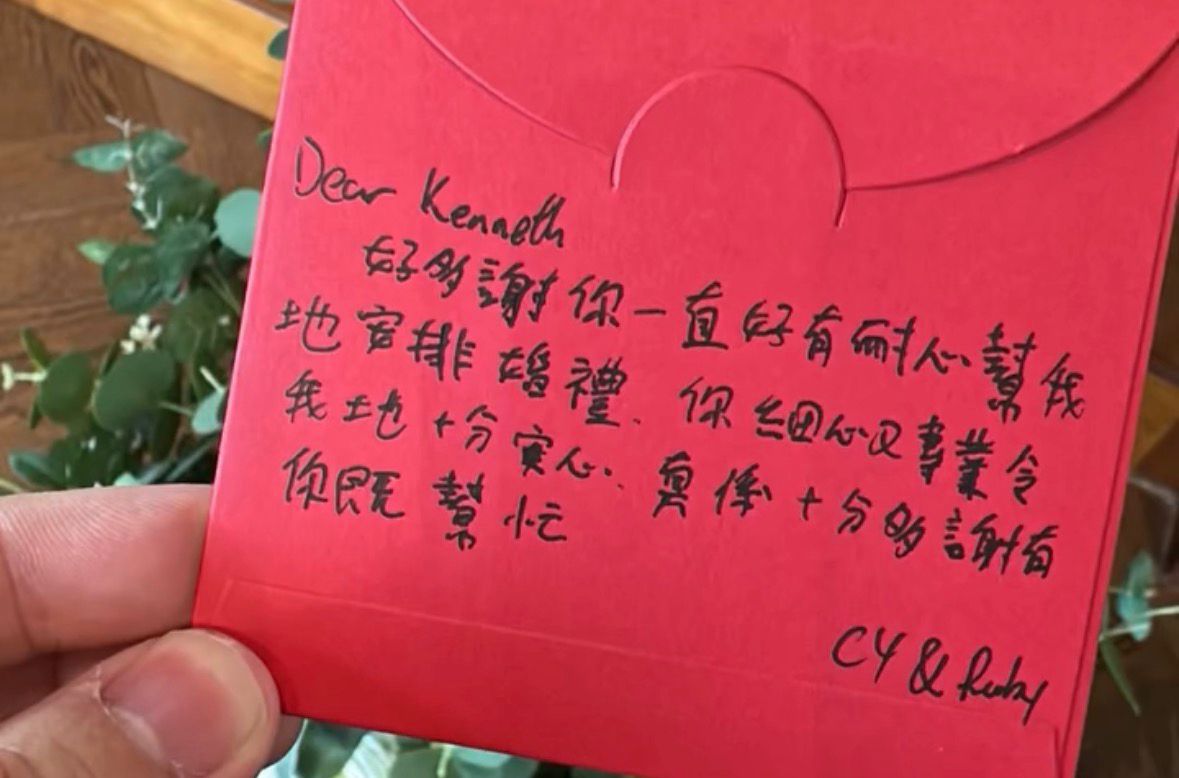 Dear Kenneth
好多謝你一直好有耐心幫我
地安排婚禮. 你細心又專業令
我地十分安心. 真係十分多謝有
你既幫忙
CY & Ruby